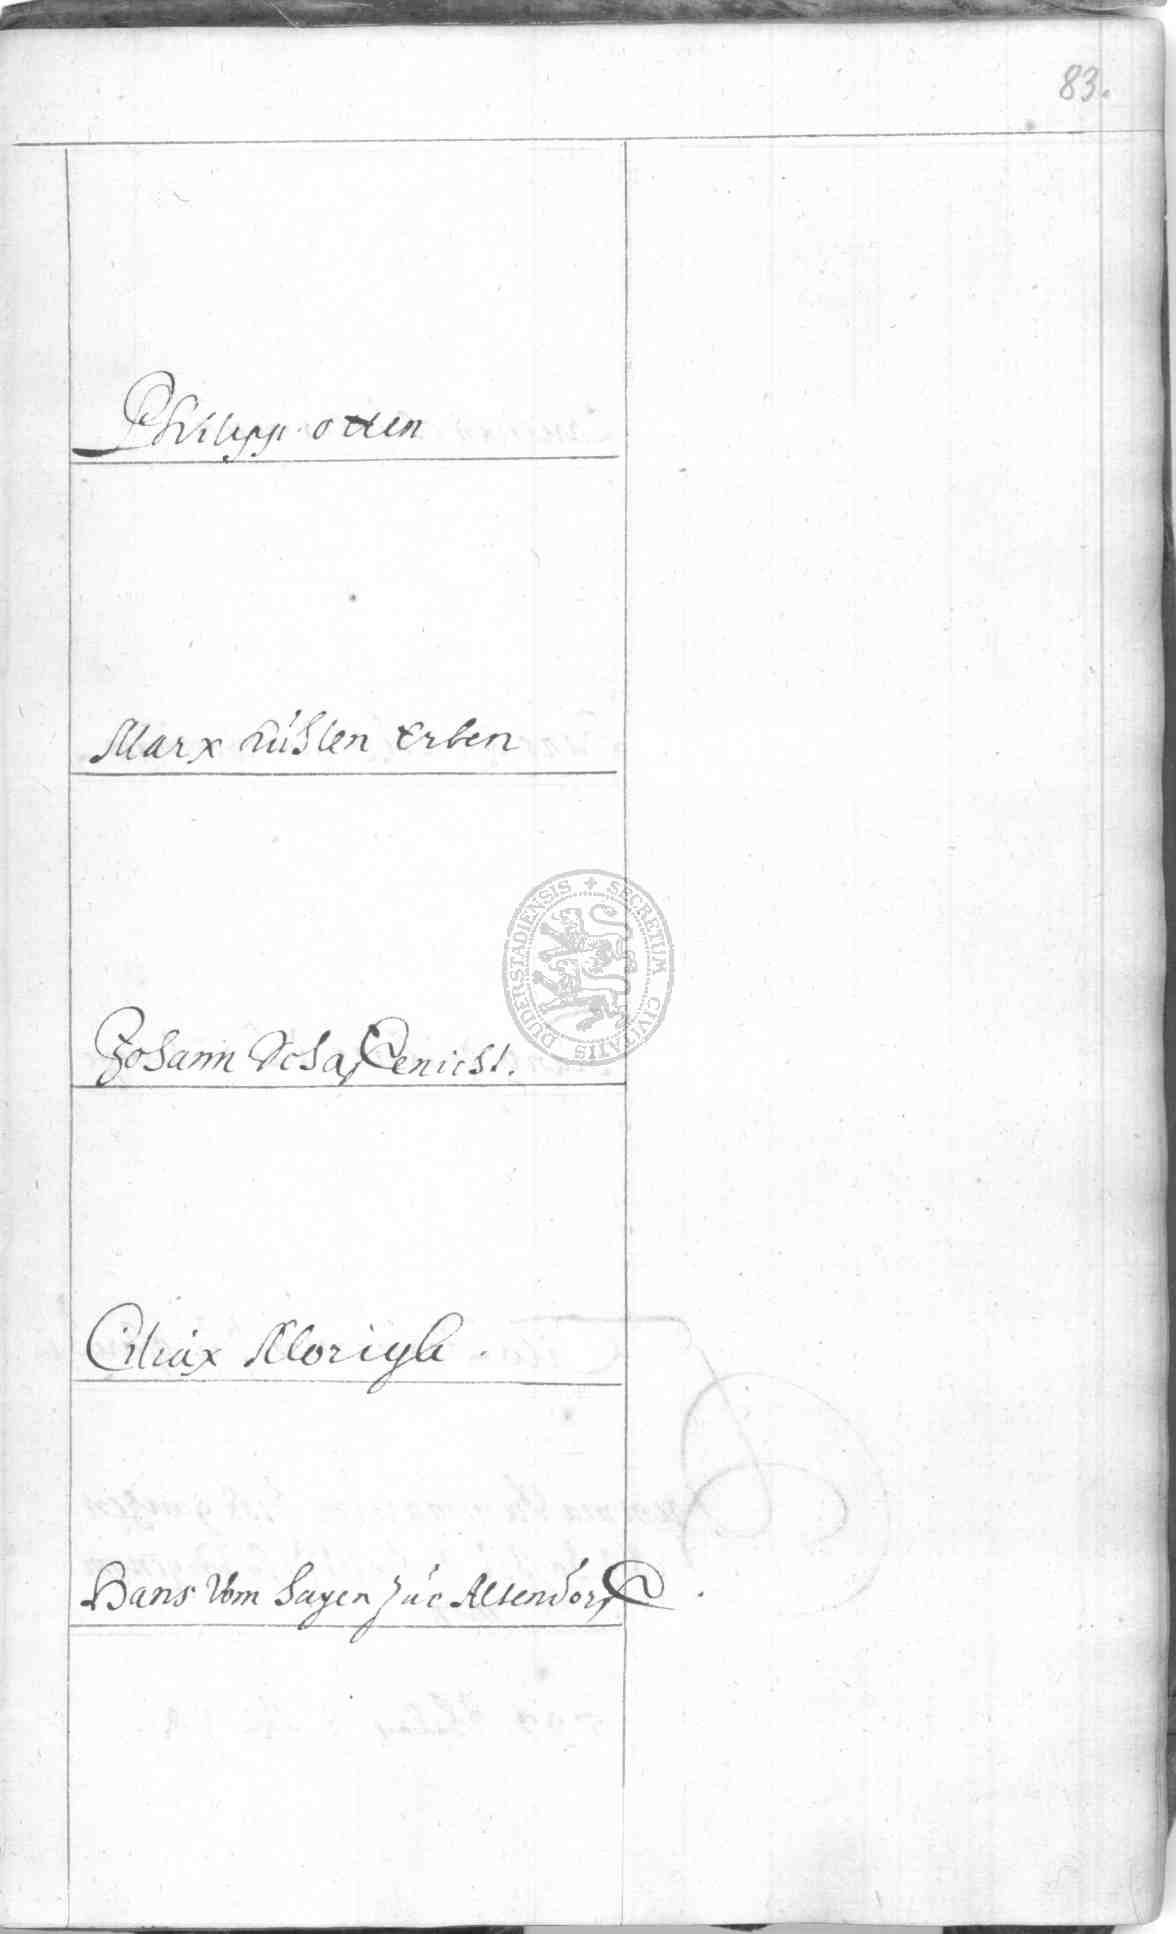 83.
Philipp otten
Marx Rúhlen Erben
Johann Schaffenicht.
Ciliax Morich.
Hans Vom hagen zúr Altendorff.
SECRETUM CIVITATIS DUDERSTADIENSIS